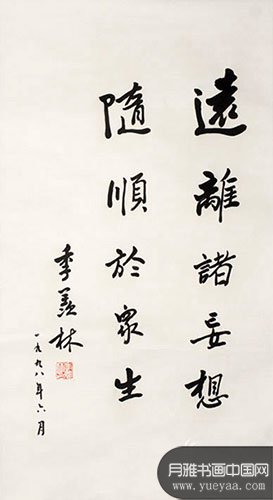 遠離諸妄想
隨順於眾生
季羡林
一九九八年六月
月雅书画中国网
www.yueyaa.com